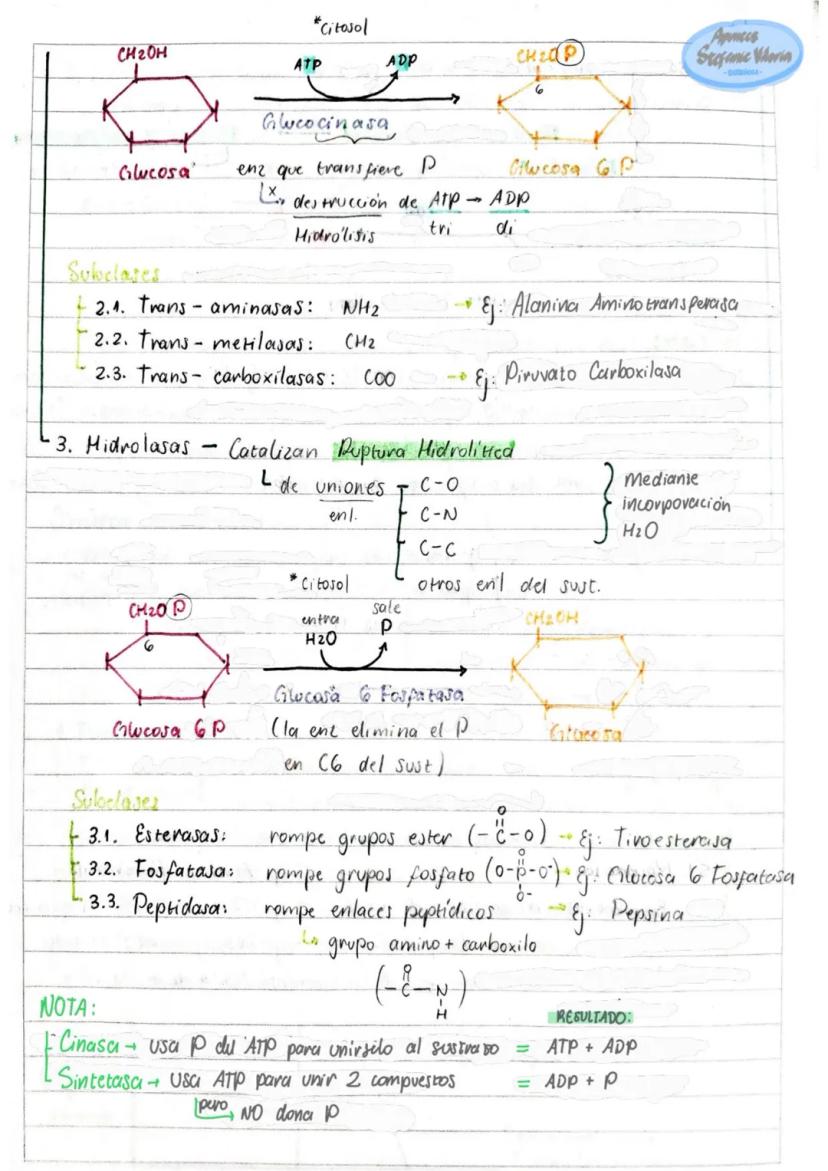 *Citosol
Apuntes
Stefanie Viloria
CH2OH
ATP
ADP
CH2O P
6
Glucocinasa
Glucosa
enz que transfiere P
Glucosa 6 P
x
destrucción de ATP → ADP
Hidrólisis tri di
Subclases
2.1. Trans - aminasas: NH2 → Ej: Alanina Aminotransperasa
2.2. Trans - metilasas: CH2
2.3. Trans - carboxilasas: COO → Ej: Piruvato Carboxilasa
3. Hidrolasas - Catalizan Ruptura Hidrolítica
de uniones C-O
enl. C-N
C-C
otros enl del sust.
Mediante
incorporación
H2O
*Citosol
CH2O P
6
entra
H2O
sale
P
CH2OH
Glucosa 6 Fosfatasa
Glucosa 6 P
(la enz elimina el P
en C6 del sust)
Glucosa
Subclases
3.1. Esterasas: rompe grupos ester (-C-O) → Ej: Tiroesterasa
O
3.2. Fosfatasa: rompe grupos fosfato (O-P-O-) → Ej: Glucosa 6 Fosfatasa
O
O-
3.3. Peptidasa: rompe enlaces peptídicos → Ej: Pepsina
grupo amino + carboxilo
O
(-C-N)
H
NOTA:
RESULTADO:
Cinasa → usa P del ATP para unirselo al sustrato = ATP + ADP
Sintetasa → usa ATP para unir 2 compuestos = ADP + P
pero NO dona P